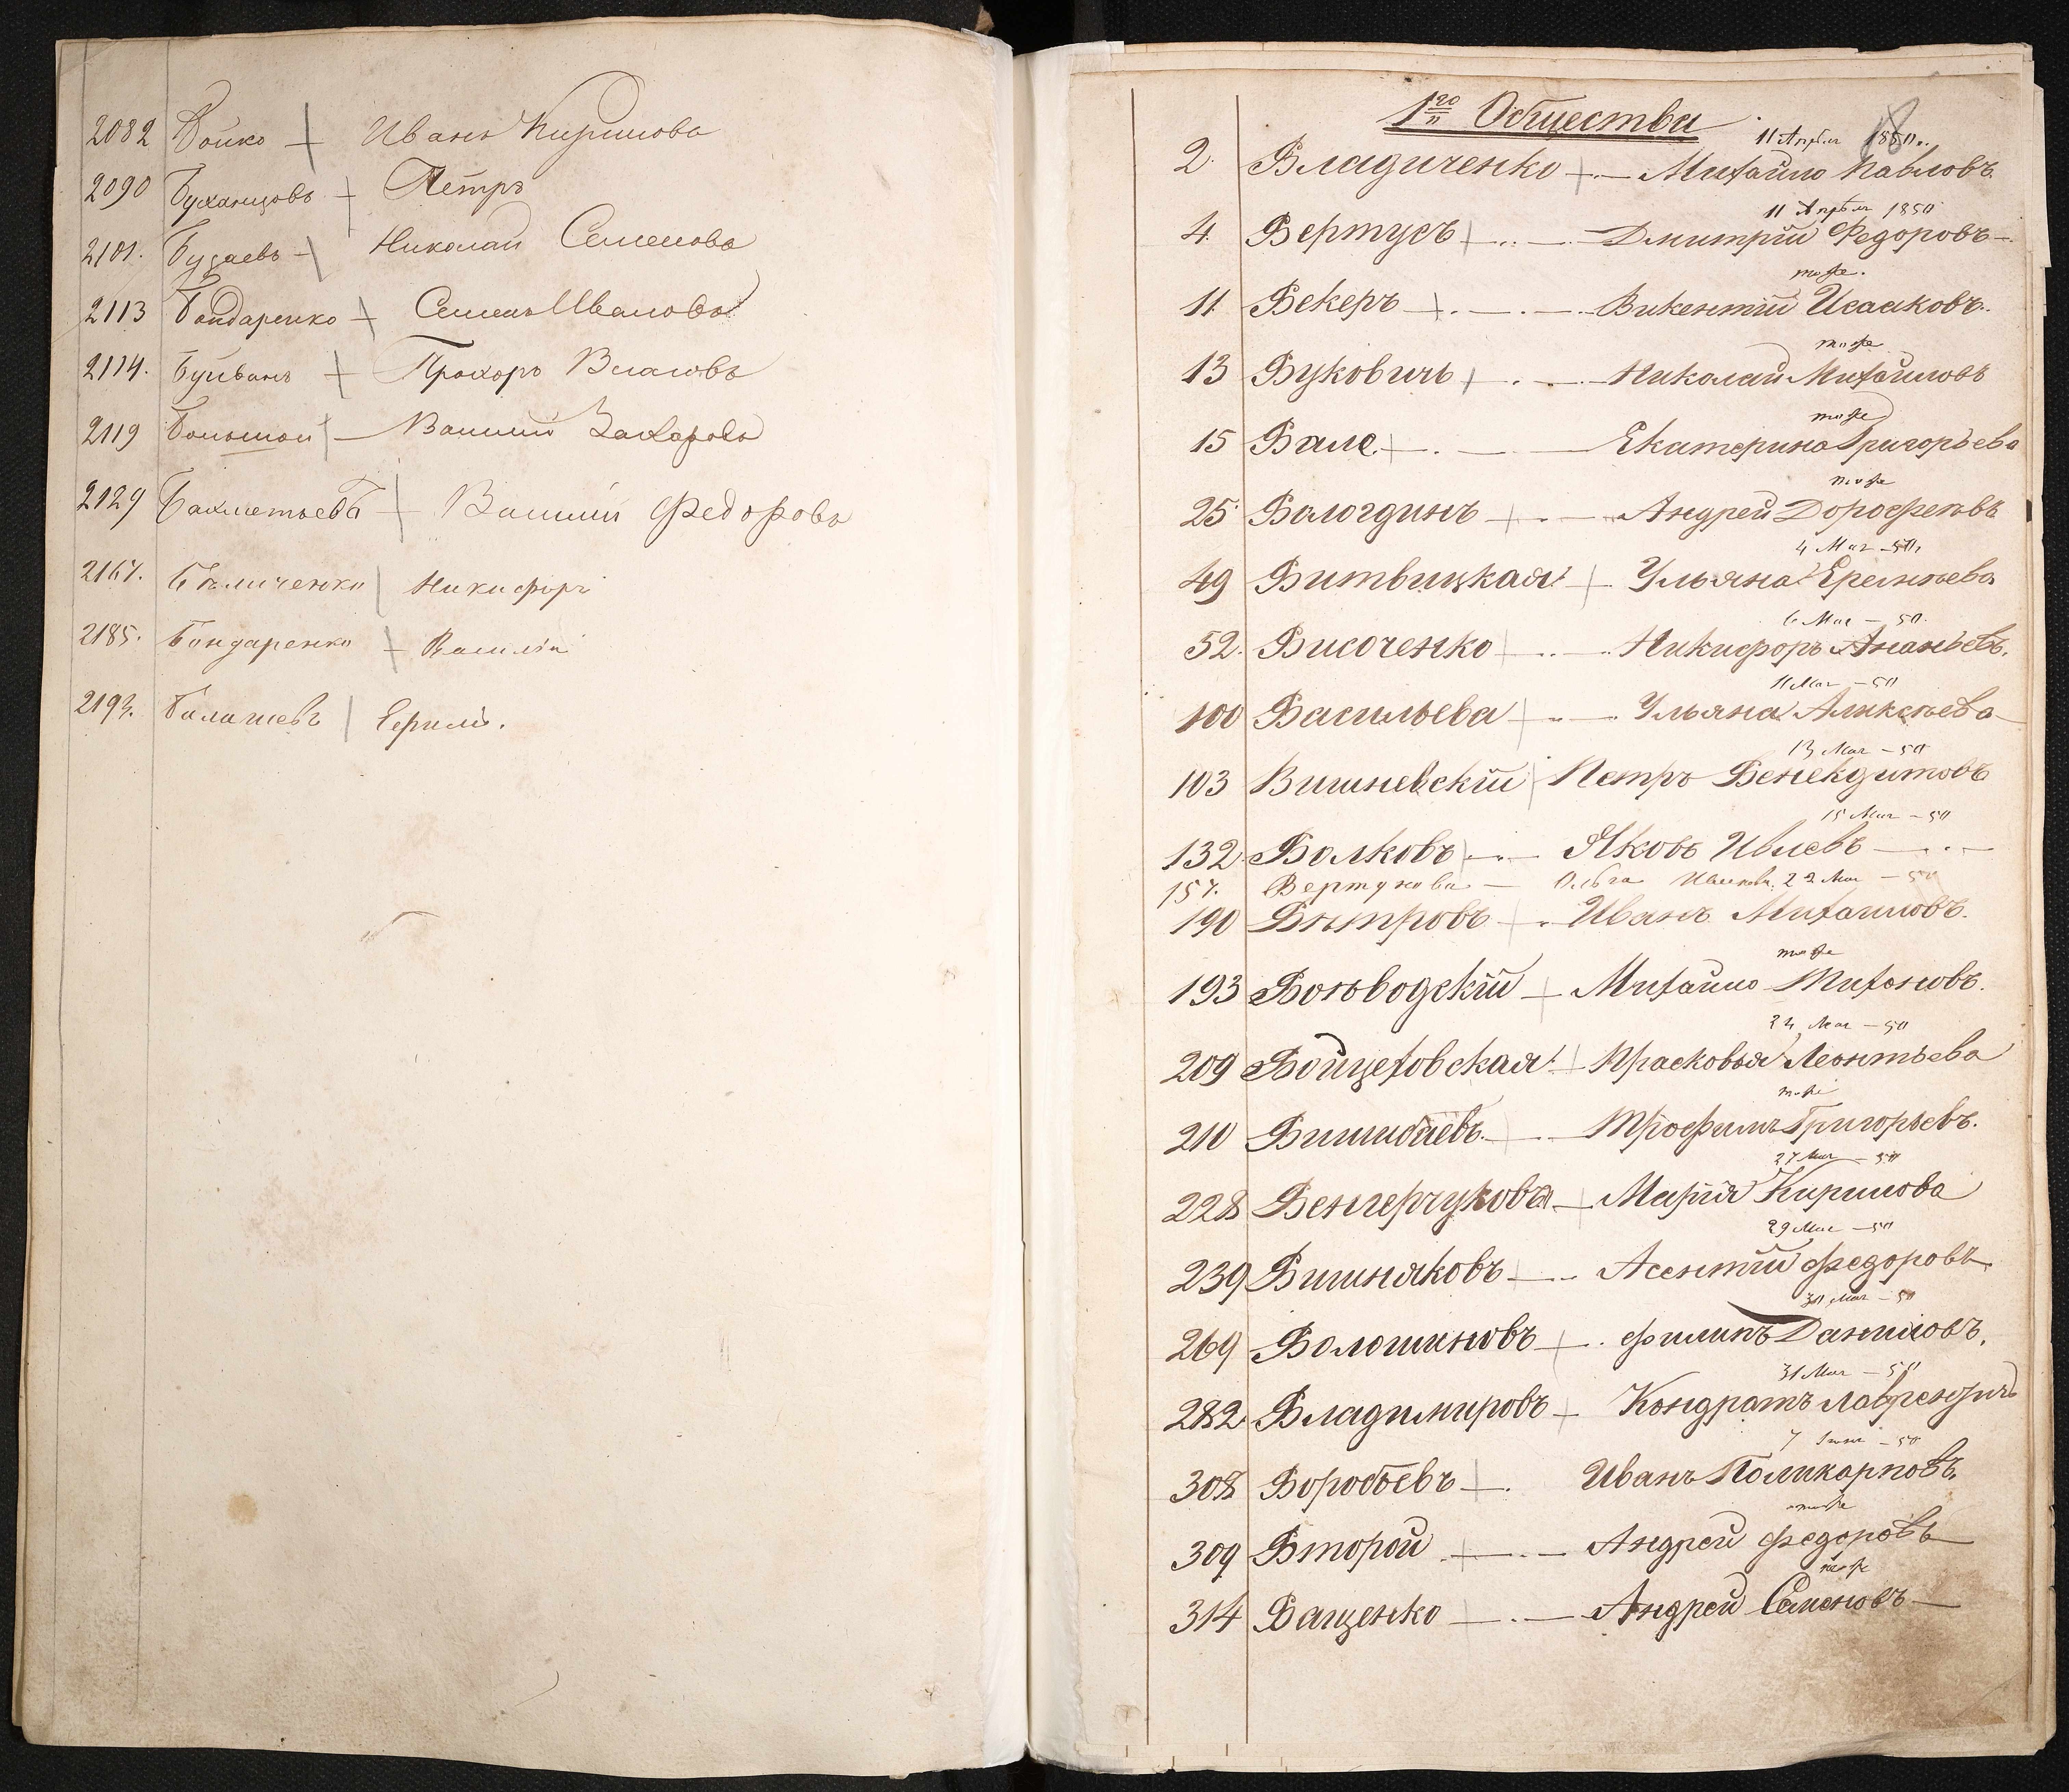 2082 Бойко Иванъ Кириловъ
2090 Буханцовъ Петръ
2101. Бузаевъ Николай Семеновъ
2113 Бондаренко Семенъ Ивановъ
2114. Буйванъ Прохоръ Власовъ
2119 Большой Василий Захаровъ
2129 Бахметьевъ Василий Федоровъ
2167. Бѣличенко Никифоръ
2185. Бондаренко Василий
2193. Балашевъ Ефимъ.
1го Общества
11 Апрѣля 1850.
2. Владиченко Михайло Павловъ
11 Апрѣля 1850
4. Вертусъ Дмитрій Федоровъ
тоже.
11. Векеръ Викентій Исааковъ.
тоже
13 Вуковичъ Николай Михайловъ
тоже
15 Вале Екатерина Григорьева
тоже
25 Вологдинъ Андрей Дорофеевъ
4 Мая 50
49 Витвицкая Ульяна Еремѣева
6 Мая – 50.
52. Височенко Никифоръ Ананьевъ.
11 Мая – 50
100 Васильева Ульяна Алексѣева
13 Мая – 50
103 Вишневскій Петръ Венекдитовъ
15 Мая – 50
132 Волковъ Яковъ Ивлевъ
157. Вертунова Ольга 22 Мая – 50
190 Вѣтровъ Иванъ Михайловъ.
тоже
193 Воѣводскій Михайло Тихоновъ.
24 Мая – 50
209 Войцеховская Прасковья Леонтьева
тоже
210 Трофимъ Григорьевъ.
27 Мая – 50
228 Венгерчукова Марія Кирилова
29 Мая – 50
239 Вишняковъ Асентій Федоровъ
30 Мая – 50
269 Волошиновъ Филипъ Даниловъ.
31 Мая – 50
282 Владимировъ Кондратъ
7 Іюня – 50
308 Воробьевъ Иванъ Поликарповъ
тоже
309 Второй Андрей Федоровъ
тоже
314 Ващенко Андрей Семеновъ